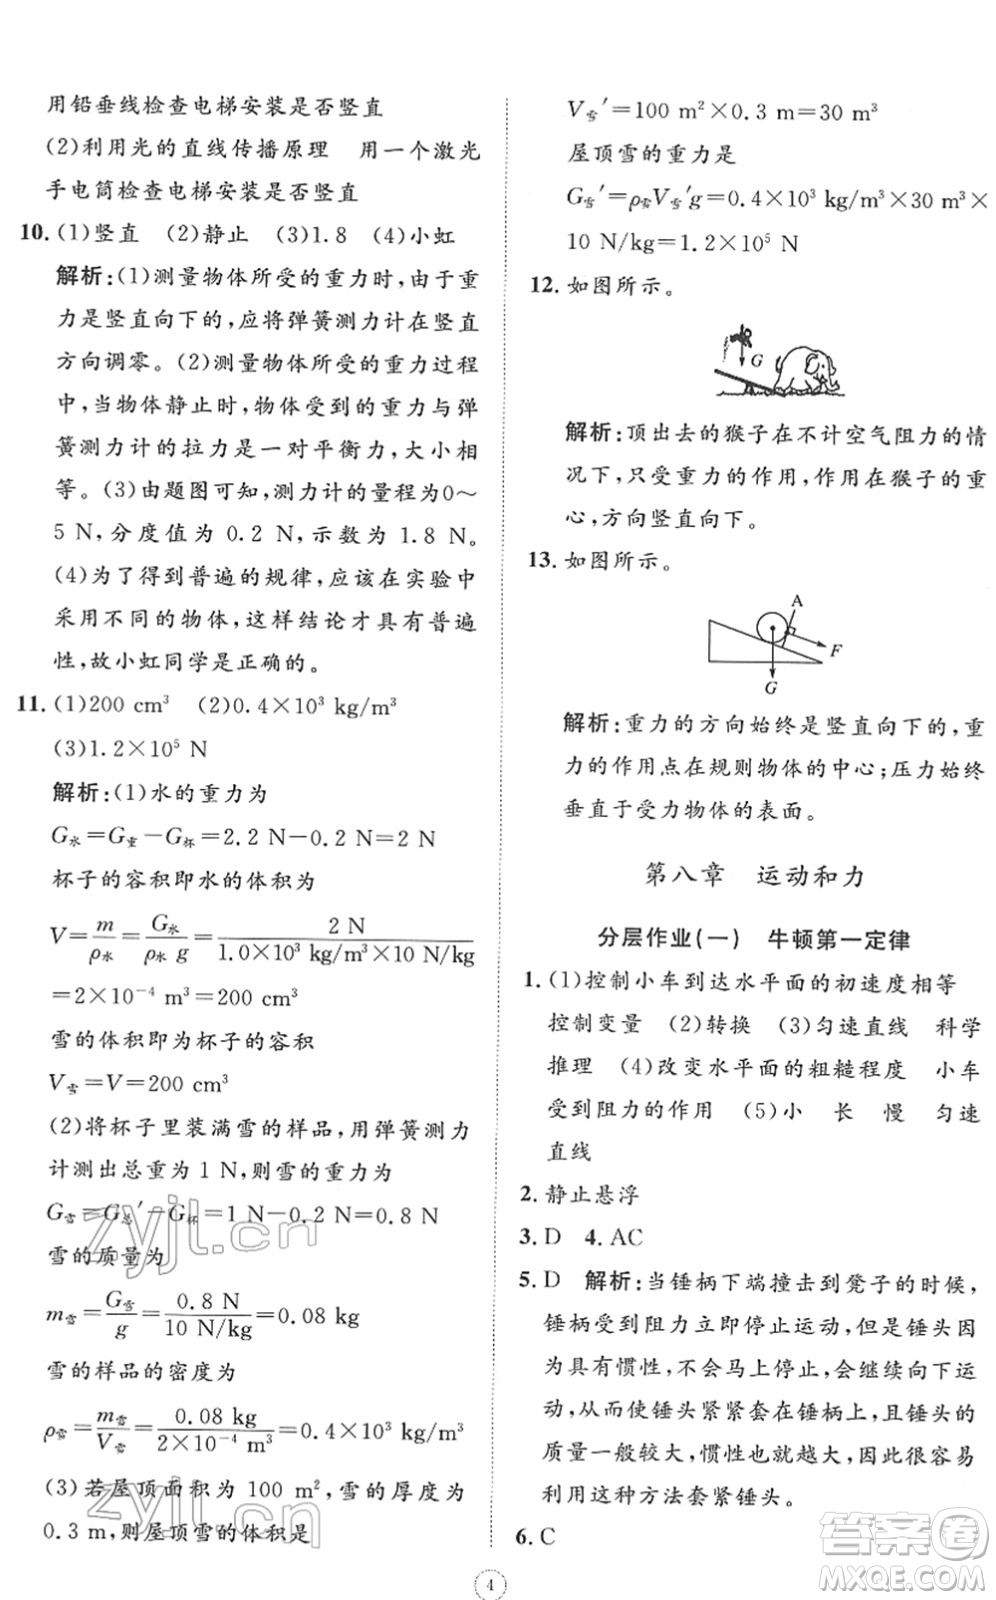 用铅垂线检查电梯安装是否竖直
(2)利用光的直线传播原理 用一个激光
手电筒检查电梯安装是否竖直
10. (1)竖直 (2)静止 (3)1.8 (4)小虹
解析:(1)测量物体所受的重力时,由于重
力是竖直向下的,应将弹簧测力计在竖直
方向调零。(2)测量物体所受的重力过程
中,当物体静止时,物体受到的重力与弹
簧测力计的拉力是一对平衡力,大小相
等。(3)由题图可知,测力计的量程为0～
5 N,分度值为 0.2 N,示数为 1.8 N。
(4)为了得到普遍的规律,应该在实验中
采用不同的物体,这样结论才具有普遍
性,故小虹同学是正确的。
11. (1)200 cm³ (2)0.4×10³ kg/m³
(3)1.2×10⁵ N
解析:(1)水的重力为
G水=G重-G杯=2.2 N-0.2 N=2 N
杯子的容积即水的体积为
V=m/ρ水=G水/(ρ水 g)=2 N/(1.0×10³ kg/m³×10 N/kg)
=2×10⁻⁴ m³=200 cm³
雪的体积即为杯子的容积
V雪=V=200 cm³
(2)将杯子里装满雪的样品,用弹簧测力
计测出总重为 1 N,则雪的重力为
G雪=G总′-G杯=1 N-0.2 N=0.8 N
雪的质量为
m雪=G雪/g=0.8 N/(10 N/kg)=0.08 kg
雪的样品的密度为
ρ雪=m雪/V雪=0.08 kg/(2×10⁻⁴ m³)=0.4×10³ kg/m³
(3)若屋顶面积为 100 m²,雪的厚度为
0.3 m,则屋顶雪的体积是
V雪′=100 m²×0.3 m=30 m³
屋顶雪的重力是
G雪′=ρ雪V雪′g=0.4×10³ kg/m³×30 m³×
10 N/kg=1.2×10⁵ N
12. 如图所示。
G
解析:顶出去的猴子在不计空气阻力的情
况下,只受重力的作用,作用在猴子的重
心,方向竖直向下。
13. 如图所示。
A
F
G
解析:重力的方向始终是竖直向下的,重
力的作用点在规则物体的中心;压力始终
垂直于受力物体的表面。
第八章 运动和力
分层作业(一) 牛顿第一定律
1. (1)控制小车到达水平面的初速度相等
控制变量 (2)转换 (3)匀速直线 科学
推理 (4)改变水平面的粗糙程度 小车
受到阻力的作用 (5)小 长 慢 匀速
直线
2. 静止悬浮
3. D 4. AC
5. D 解析:当锤柄下端撞击到凳子的时候,
锤柄受到阻力立即停止运动,但是锤头因
为具有惯性,不会马上停止,会继续向下运
动,从而使锤头紧紧套在锤柄上,且锤头的
质量一般较大,惯性也就越大,因此很容易
利用这种方法套紧锤头。
6. C
4
zyjl.cn
zyjl.cn
答案圈
MXQE.COM